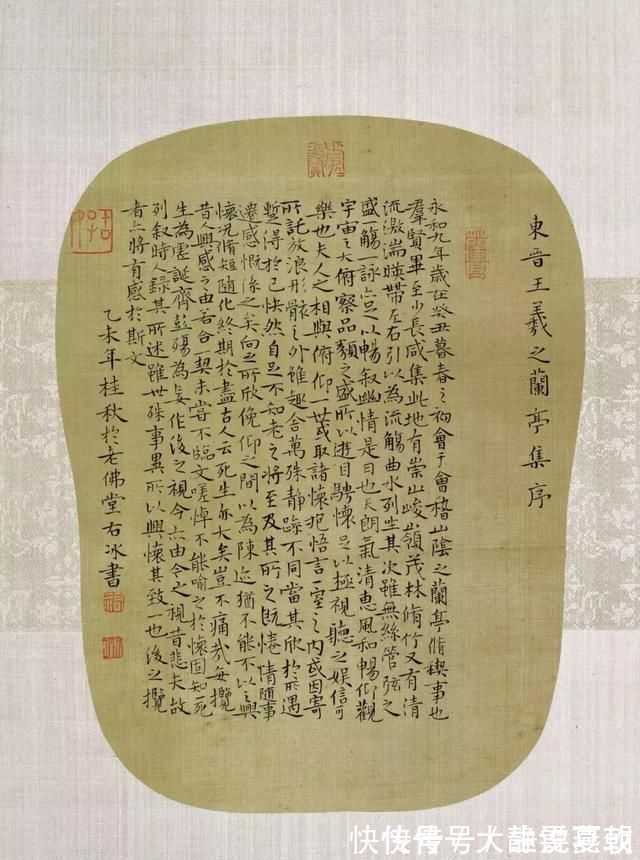 東晉王羲之蘭亭集序
永和九年歲在癸丑暮春之初會于會稽山陰之蘭亭脩稧事也
羣賢畢至少長咸集此地有崇山峻嶺茂林脩竹又有清
流激湍暎帶左右引以為流觴曲水列坐其次雖無絲管弦之
盛一觴一詠亦足以暢叙幽情是日也天朗氣清惠風和暢仰觀
宇宙之大俯察品類之盛所以遊目騁懷足以極視聽之娛信可
樂也夫人之相與俯仰一世或取諸懷抱悟言一室之內或因寄
所託放浪形骸之外雖趣舍萬殊靜躁不同當其欣於所遇
蹔得於己快然自足不知老之將至及其所之既惓情隨事
遷感慨係之矣向之所欣俛仰之間以為陳迹猶不能不以之興
懷況脩短隨化終期於盡古人云死生亦大矣豈不痛哉每攬
昔人興感之由若合一契未嘗不臨文嗟悼不能喻之於懷固知一死
生為虛誕齊彭殤為妄作後之視今亦由今之視昔悲夫故
列叙時人錄其所述雖世殊事異所以興懷其致一也後之攬
者亦將有感於斯文
乙未年桂秋於老佛堂右冰書